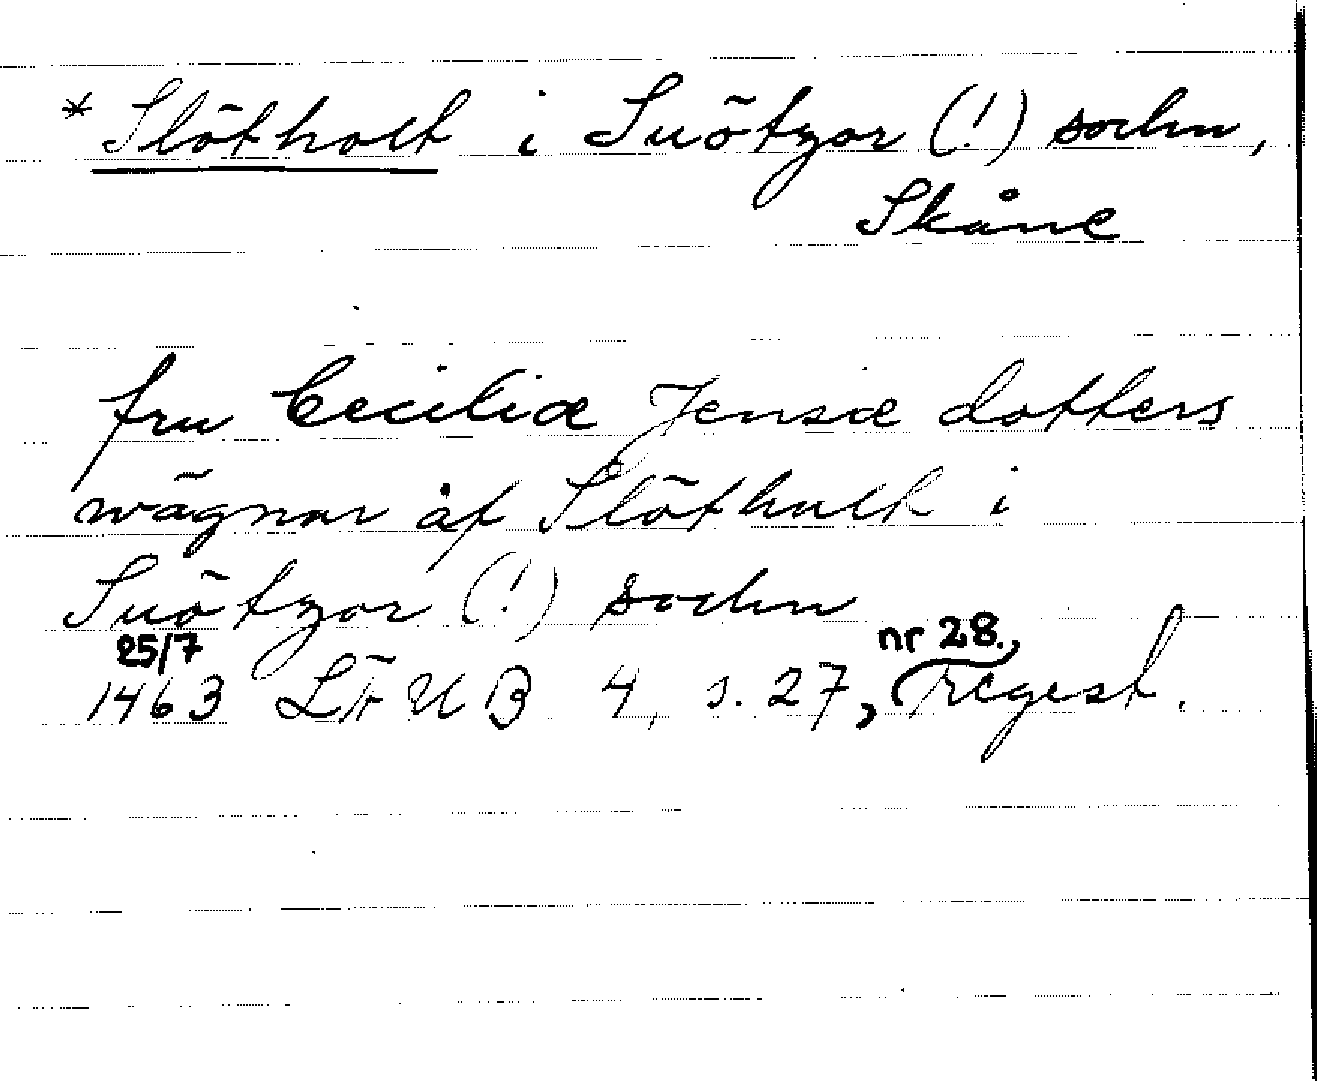 * Slötholt i Suötzor (!) sochn,
Skåne
fru Ceciliæ Jensæ dotters
wägnar af Slöthult i
Suötzor (!) sochn
25/7 nr 28.,
1463 LÄUB 4, s. 27, regest.